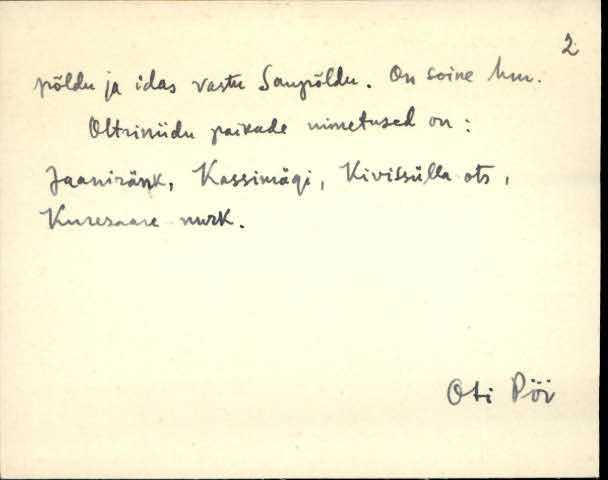 2
põldu ja idas vastu Saupõldu. On soine hm.
Oltriniidu paikade nimetused on:
Jaaniränk, Kassimägi, Kivissülla ots,
Kuresaare nurk.
Oti Pöi